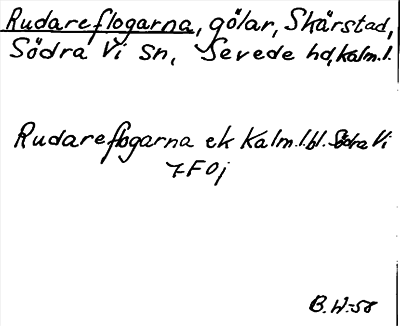 Rudareflogarna, gölar, Skärstad,
Södra Vi sn, Sevede hd, Kalm.l.
Rudareflogarna ek Kalm.l.bl. Södra Vi
7F0j
B.W-58